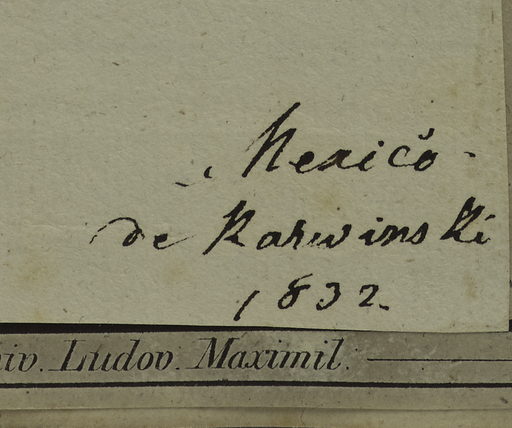 Mexico
de Karwinski
1832.
iv. Ludov. Maximil.